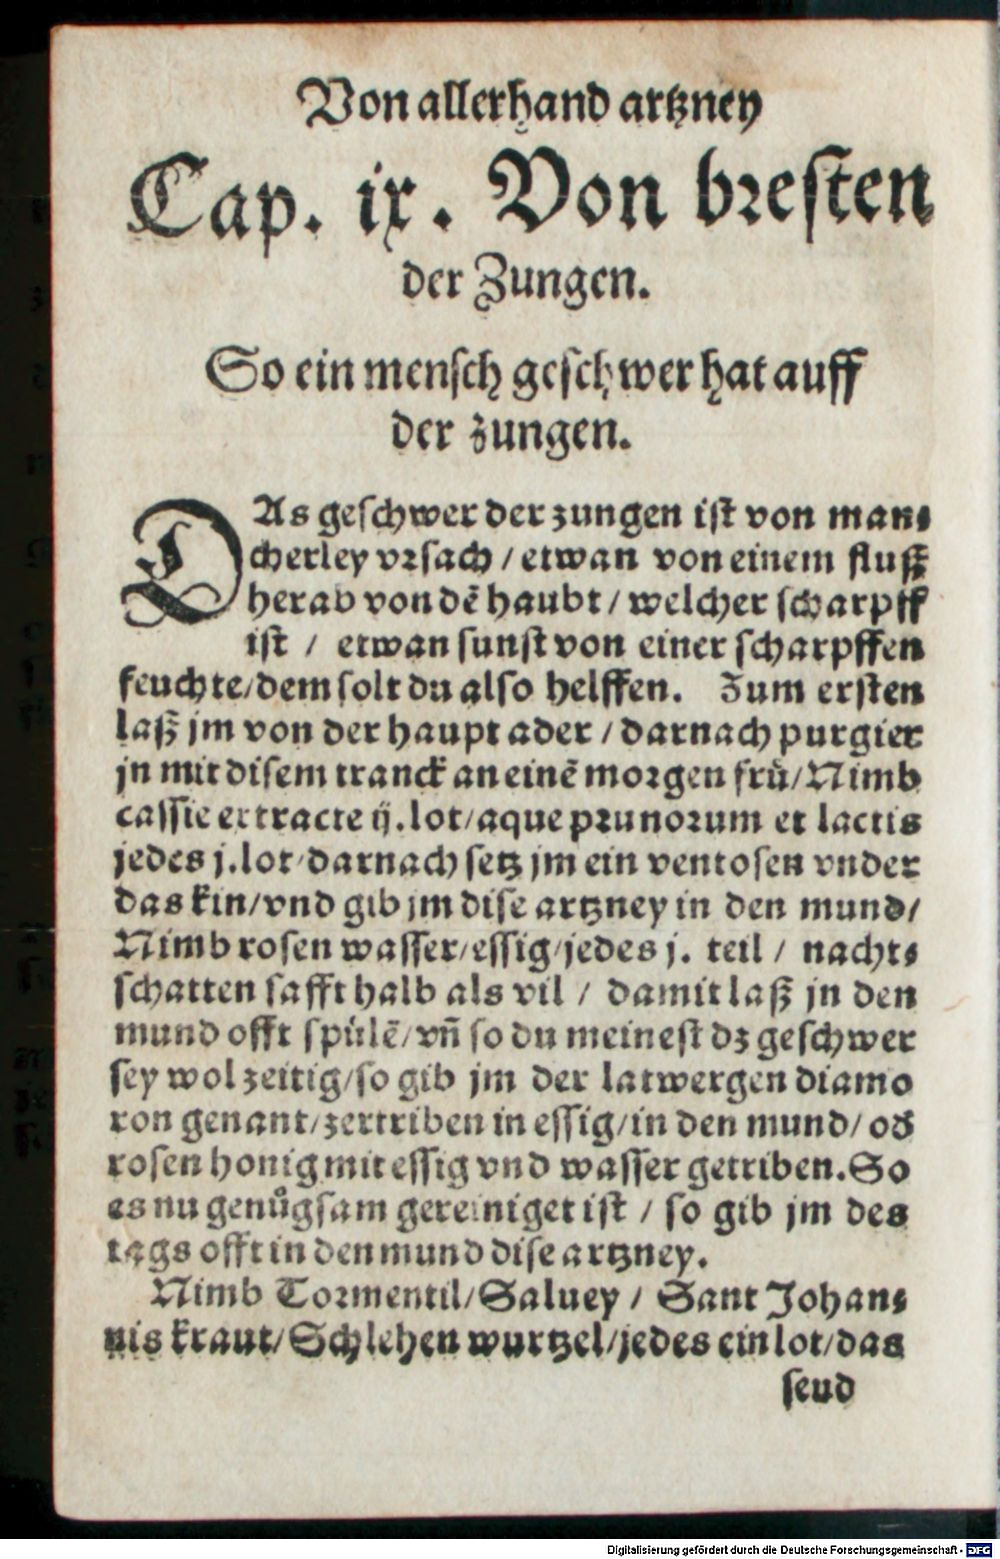 Von allerhand artzney
Cap. ix. Von bresten
der Zungen.
So ein mensch geschwer hat auff
der zungen.
DAs geschwer der zungen ist von man⸗
cherley vrsach / etwan von einem fluß
herab von dẽ haubt / welcher scharpff
ist / etwan sunst von einer scharpffen
feuchte/dem solt du also helffen. Zum ersten
laß jm von der haupt ader / darnach purgier
jn mit disem tranck an einẽ morgen frů/Nimb
cassie extracte ij.lot/aque prunorum et lactis
jedes j.lot/darnach setz jm ein ventosen vnder
das kin/vnd gib jm dise artzney in den mund/
Nimb rosen wasser/essig/jedes j. teil / nacht⸗
schatten safft halb als vil / damit laß jn den
mund offt spülẽ/vñ so du meinest dz geschwer
sey wol zeitig/so gib jm der latwergen diamo
ron genant/zertriben in essig/in den mund/ oď
rosen honig mit essig vnd wasser getriben.So
es nu genůgsam gereiniget ist / so gib jm des
tags offt in den mund dise artzney.
Nimb Tormentil/Saluey / Sant Johan⸗
nis kraut/Schlehen wurtzel/jedes ein lot/das
seud
Digitalisierung gefördert durch die Deutsche Forschungsgemeinschaft - DFG